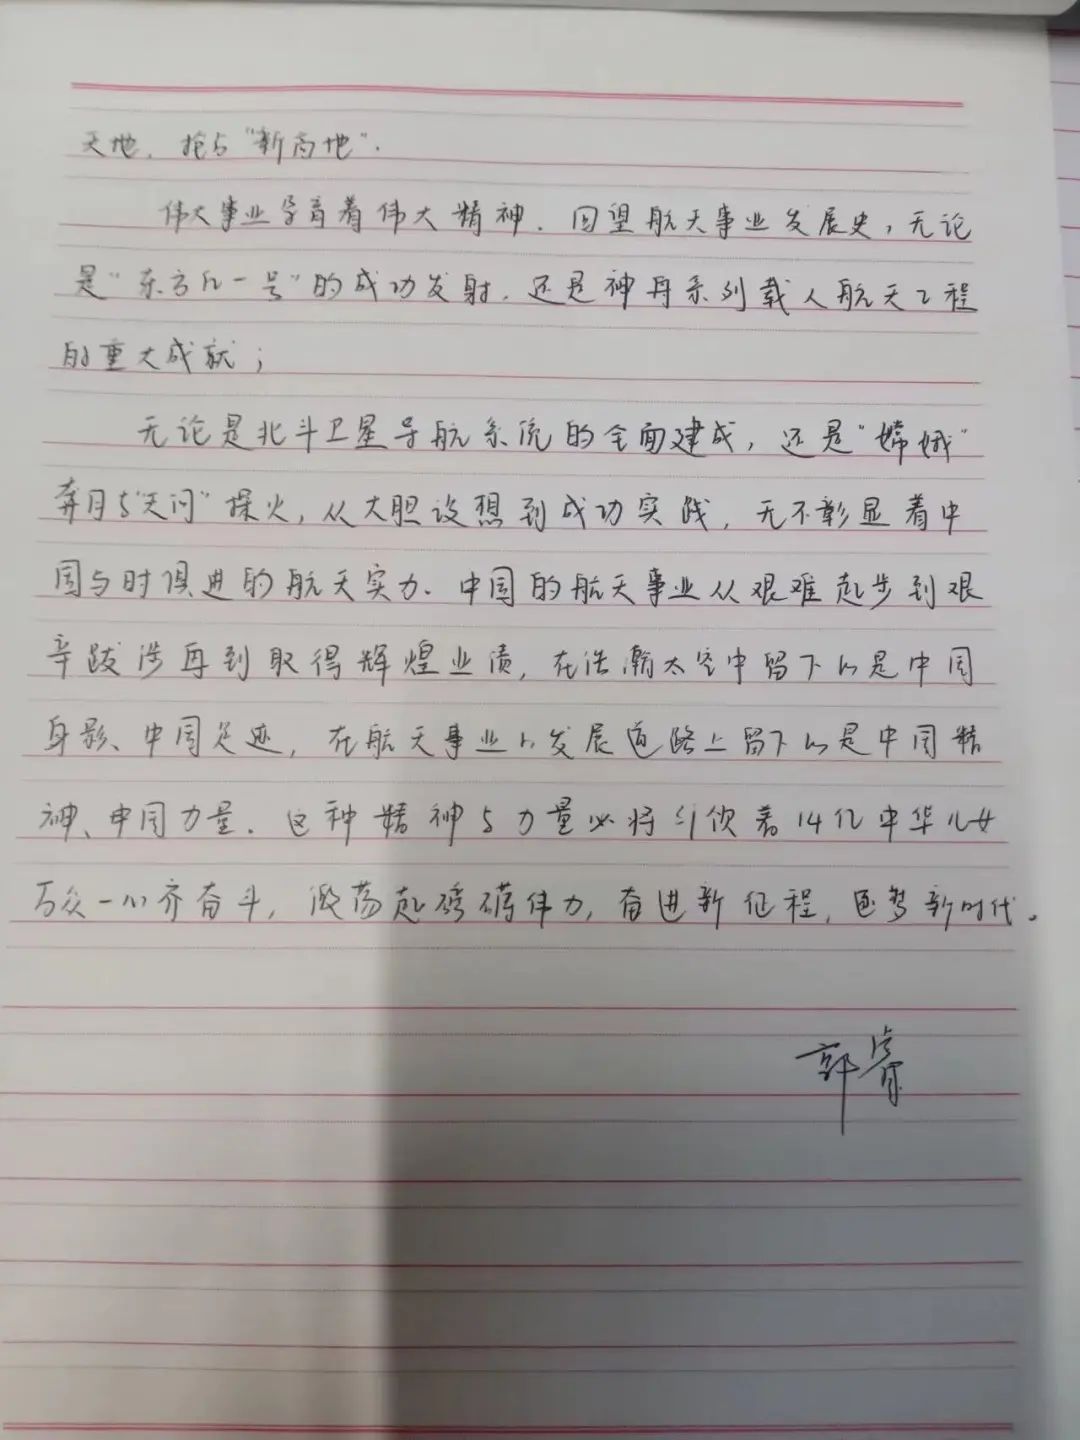 天地，抢占“新高地”.
伟大事业孕育着伟大精神．回望航天事业发展史，无论
是“东方红一号”的成功发射．还是神舟系列载人航天工程
的重大成就；
无论是北斗卫星导航系统的全面建成，还是“嫦娥”
奔月与“天问”探火，从大胆设想到成功实践，无不彰显着中
国与时俱进的航天实力．中国的航天事业从艰难起步到艰
辛跋涉再到取得辉煌业绩，在浩瀚太空中留下的是中国
身影、中国足迹，在航天事业的发展道路上留下的是中国精
神、中国力量．这种精神与力量必将引领着14亿中华儿女
万众一心齐奋斗，激荡起磅礴伟力，奋进新征程，逐梦新时代。
郭睿